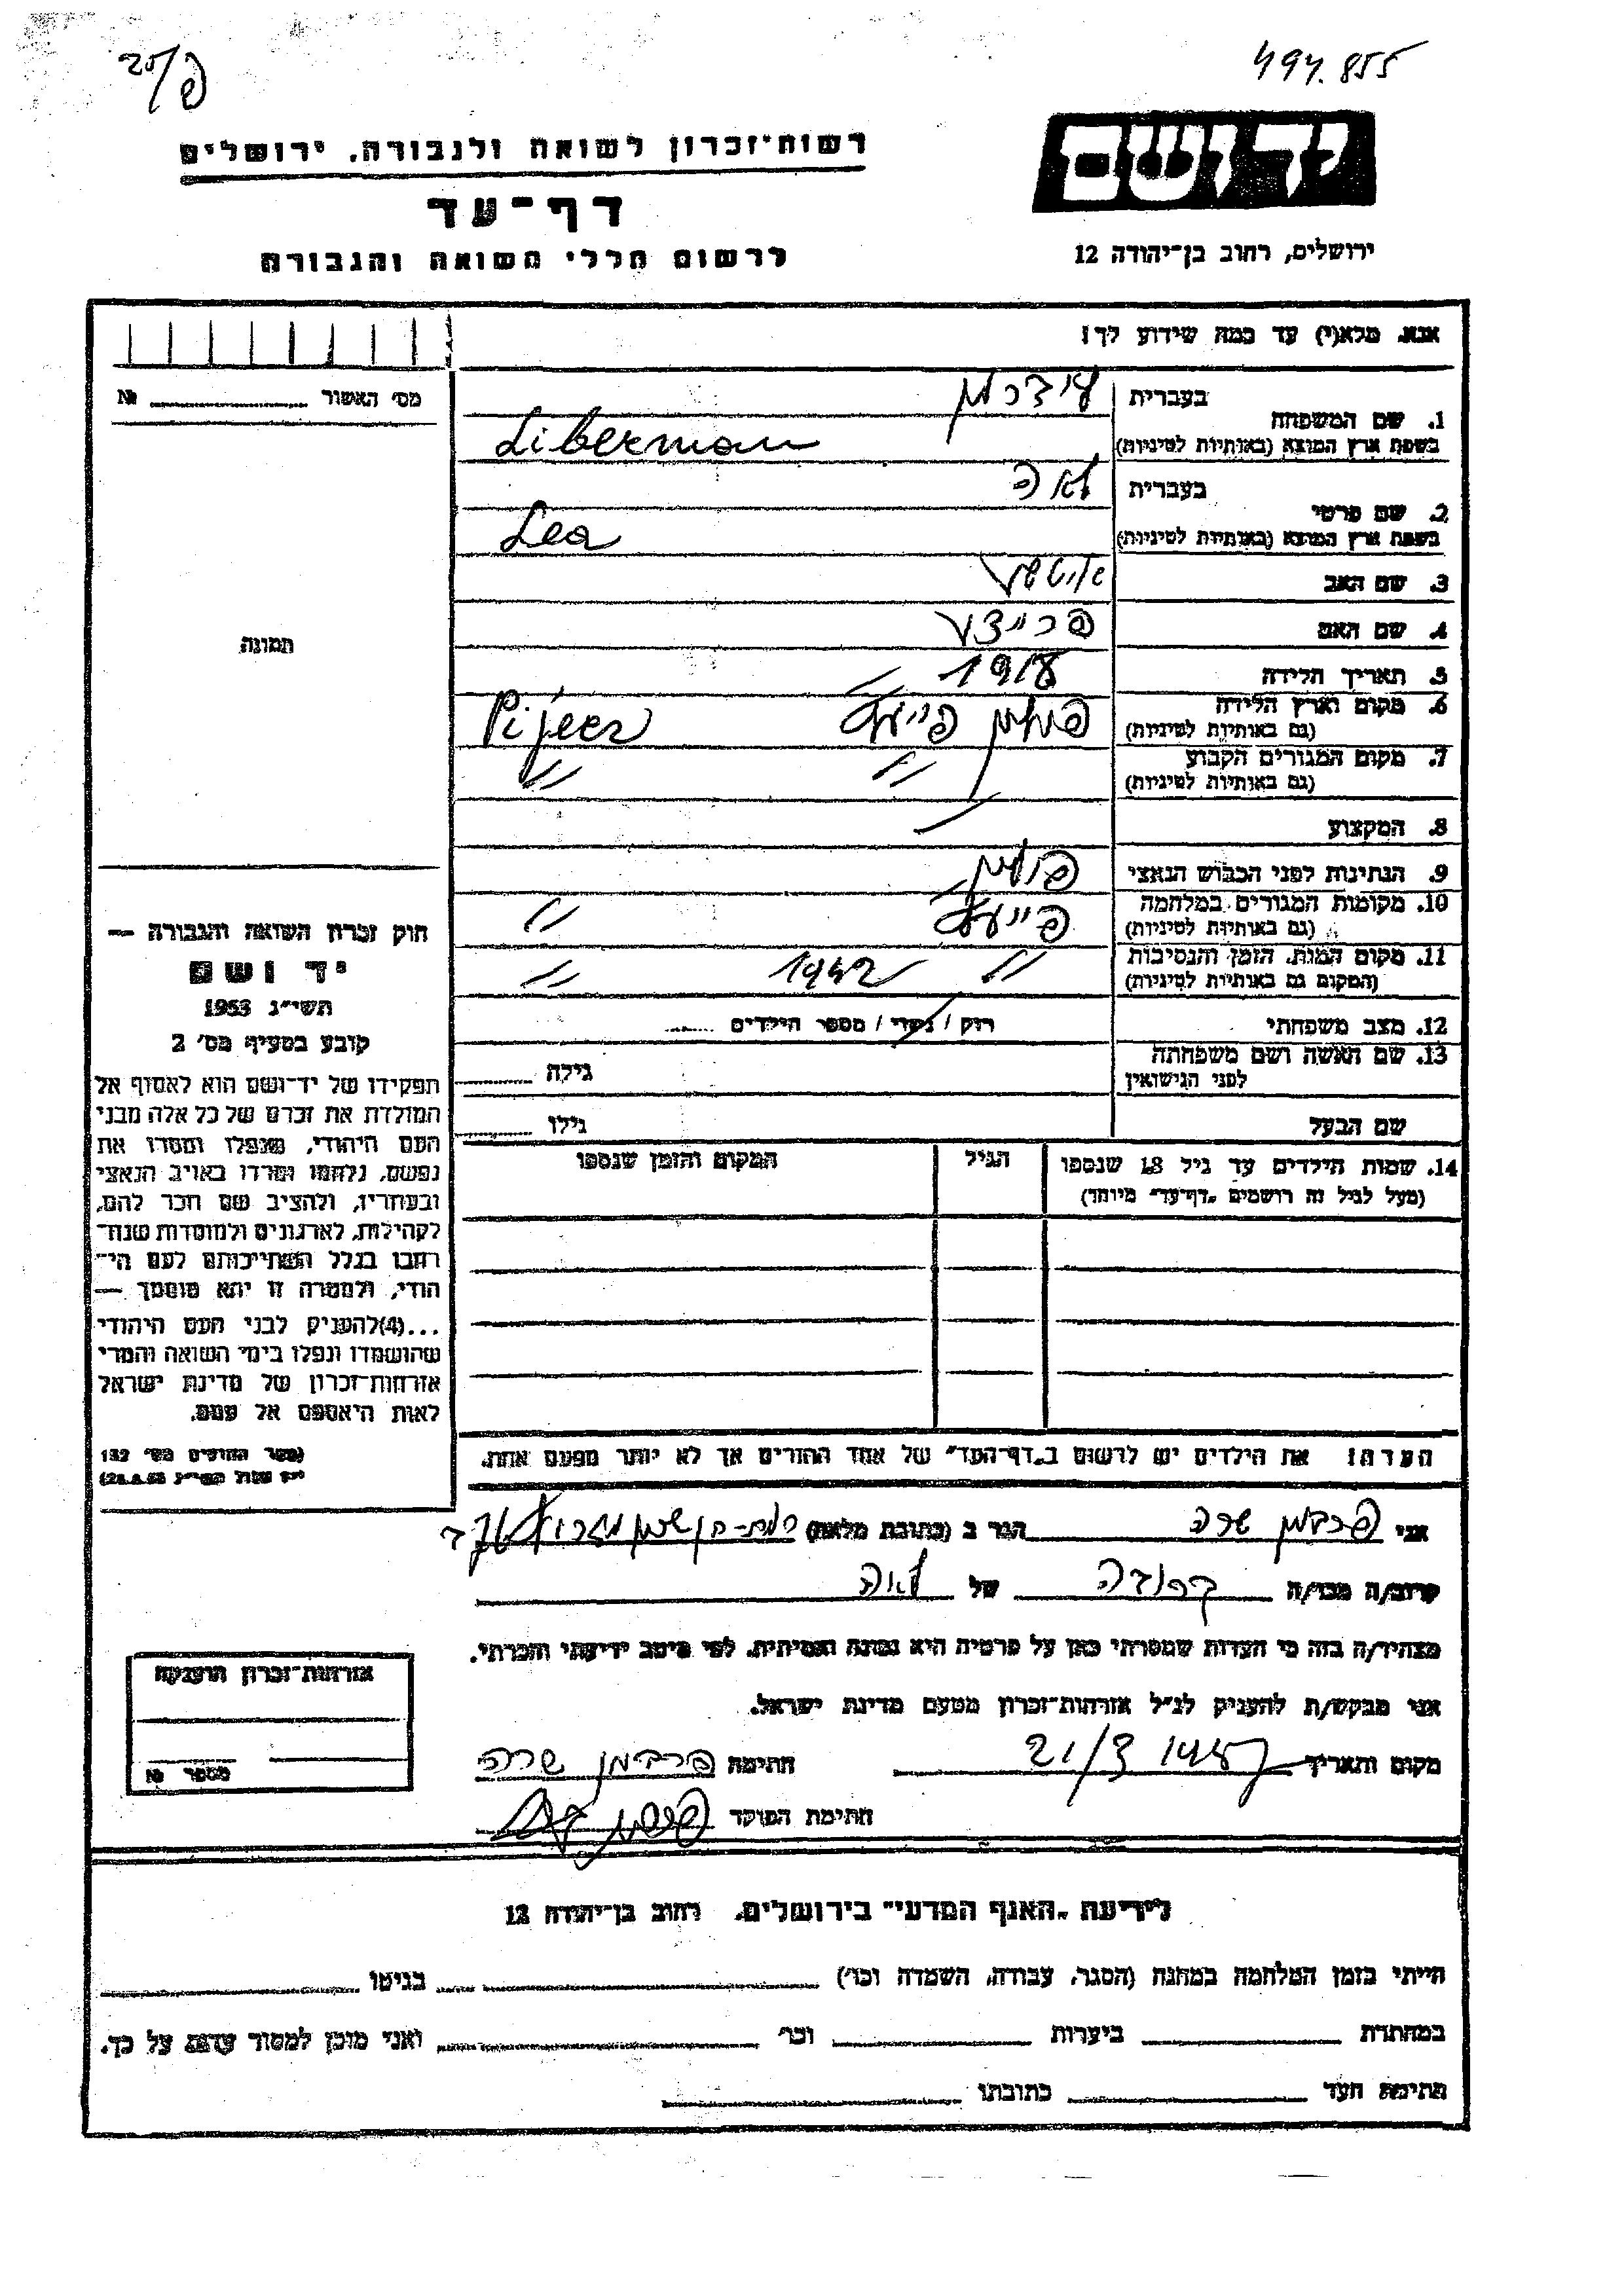 494.855
פ/25
יד ושם
ירושלים, רחוב בן־יהודה 12
רשות־זכרון לשואה ולגבורה, ירושלים
דף־עד
לרשום חללי השואה והגבורה
אנא, מלא(י) עד כמה שידוע לך!
מס׳ האשור № 
1. שם המשפחה
בעברית ליברמן
בשפת ארץ המוצא (באותיות לטיניות) Liberman
2. שם פרטי
בעברית לאה
בשפת ארץ המוצא (באותיות לטיניות) Lea
3. שם האב
4. שם האם
5. תאריך הלידה 1918
6. מקום וארץ הלידה
(גם באותיות לטיניות) פולין Pijeer
7. מקום המגורים הקבוע
(גם באותיות לטיניות) // //
8. המקצוע
9. הנתינות לפני הכבוש הנאצי פולין
10. מקומות המגורים במלחמה
(גם באותיות לטיניות) //
11. מקום המות, הזמן והנסיבות
(המקום גם באותיות לטיניות) // 1942 //
12. מצב משפחתי רוק / נשוי / מספר הילדים
13. שם האשה ושם משפחתה
לפני הנישואין גילה
שם הבעל גילו
14. שמות הילדים עד גיל 18 שנספו
(מעל לגיל זה רושמים "דף־עד" מיוחד)
הגיל
המקום והזמן שנספו
תמונה
חוק זכרון השואה והגבורה —
יד ושם
תשי״ג 1953
קובע בסעיף מס׳ 2
תפקידו של יד־ושם הוא לאסוף אל
המולדת את זכרם של כל אלה מבני
העם היהודי, שנפלו ומסרו את
נפשם, נלחמו ומרדו באויב הנאצי
ובעוזריו, ולהציב שם וזכר להם,
לקהילות, לארגונים ולמוסדות שנח־
רבו בגלל השתייכותם לעם הי־
הודי, ולמטרה זו יהא מוסמך —
...(4)להעניק לבני העם היהודי
שהושמדו ונפלו בימי השואה והמרי
אזרחות־זכרון של מדינת ישראל
לאות היאספם אל עמם.
(ספר החוקים מס׳ 132
י״ז אלול תשי״ג 28.8.53)
הערה! את הילדים יש לרשום ב"דף־העד" של אחד ההורים אך לא יותר מפעם אחת.
אני פרבמן שרה הגר ב (כתובת מלאה) רמת-גן
קרוב/ה מכר/ה קרובה של לאה
מצהיר/ה בזה כי העדות שמסרתי כאן על פרטיה היא נכונה ואמיתית, לפי מיטב ידיעתי והכרתי.
אני מבקש/ת להעניק לנ״ל אזרחות־זכרון מטעם מדינת ישראל.
מקום ותאריך 21/3 1957 חתימה פרבמן שרה
חתימת הפוקד
אזרחות־זכרון הוענקה
מספר №
לידיעת "האגף המדעי" בירושלים, רחוב בן־יהודה 12
הייתי בזמן המלחמה במחנה (הסגר, עבודה, השמדה וכו׳) בגיטו
במחתרת ביערות וכו׳ ואני מוכן למסור עדות על כך.
חתימת העד כתובתו